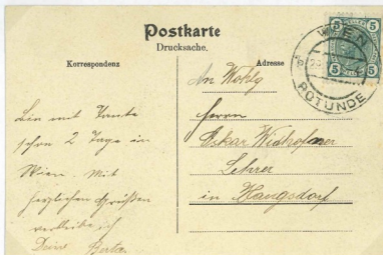 Postkarte
Drucksache.
Korrespondenz
Adresse
5
5
5
5
WIEN
ROTUNDE
Bin mit Tante
schon 2 Tage in
Wien. Mit
herzlichen Grüßen
verbleibe ich
Deine Berta
An Wohlg
Herrn
Oskar
Lehrer
in